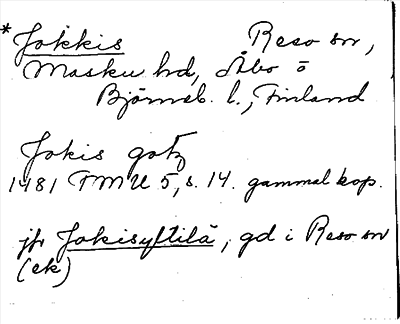 *Jokkis Reso sn,
Masku hd, Åbo o
Björneb. l., Finland
Jokis gotz
1481 FMU 5, s. 14. gammal kop.
jfr Jokisyltilä, gd i Reso sn
(ek)